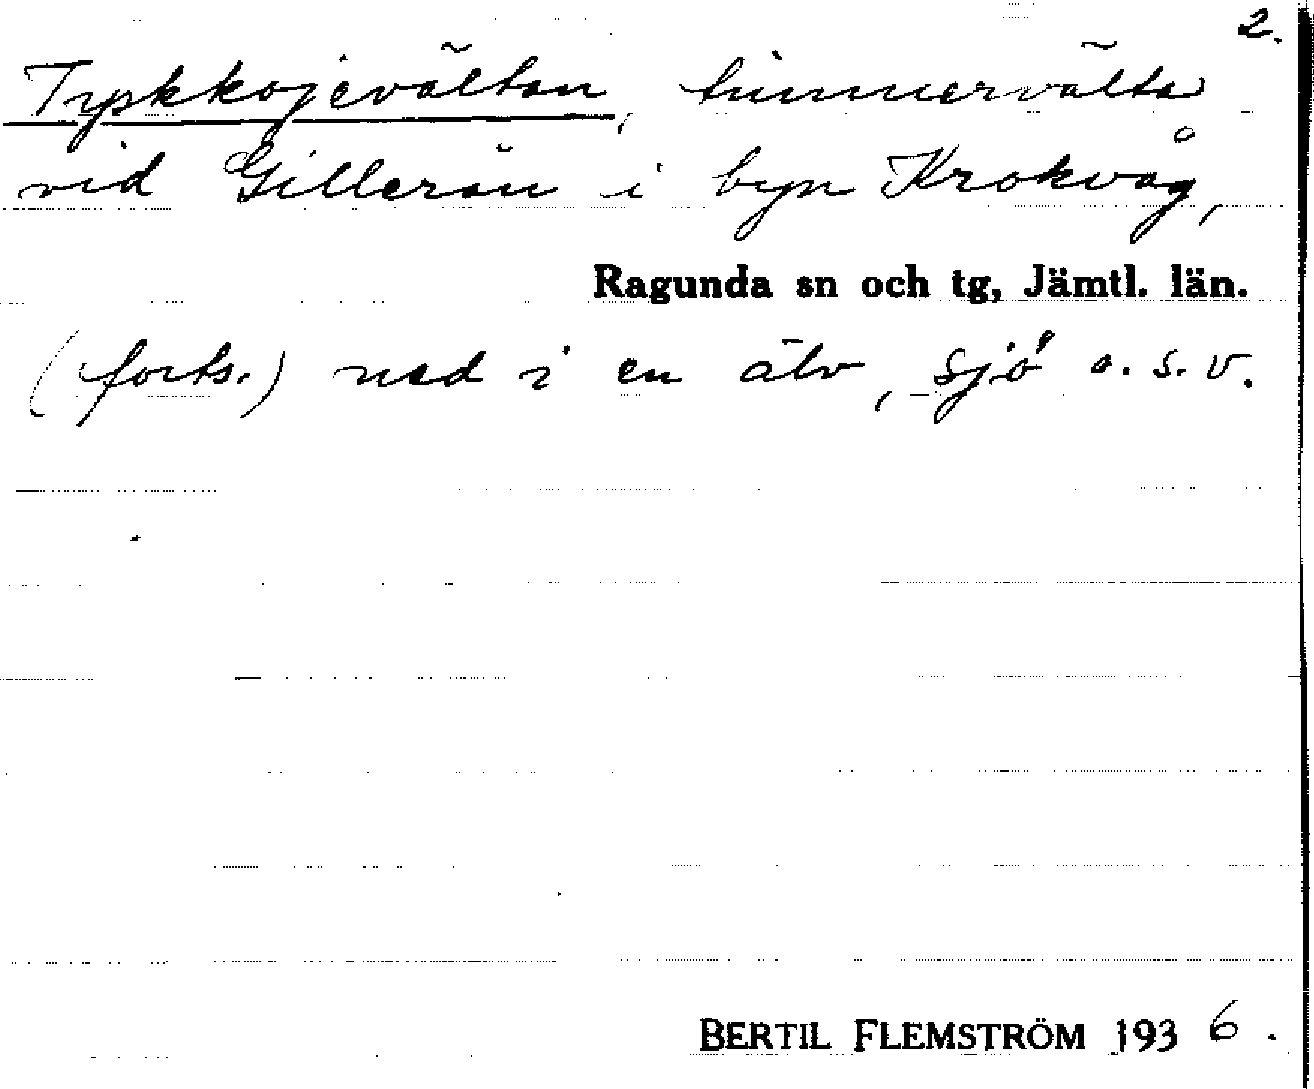 2.
Tyskkojevältan, timmervälta
vid Gillerån i byn Krokvåg,
Ragunda sn och tg, Jämtl. län.
(forts.) ned i en älv, sjö o.s.v.
BERTIL FLEMSTRÖM 1936.